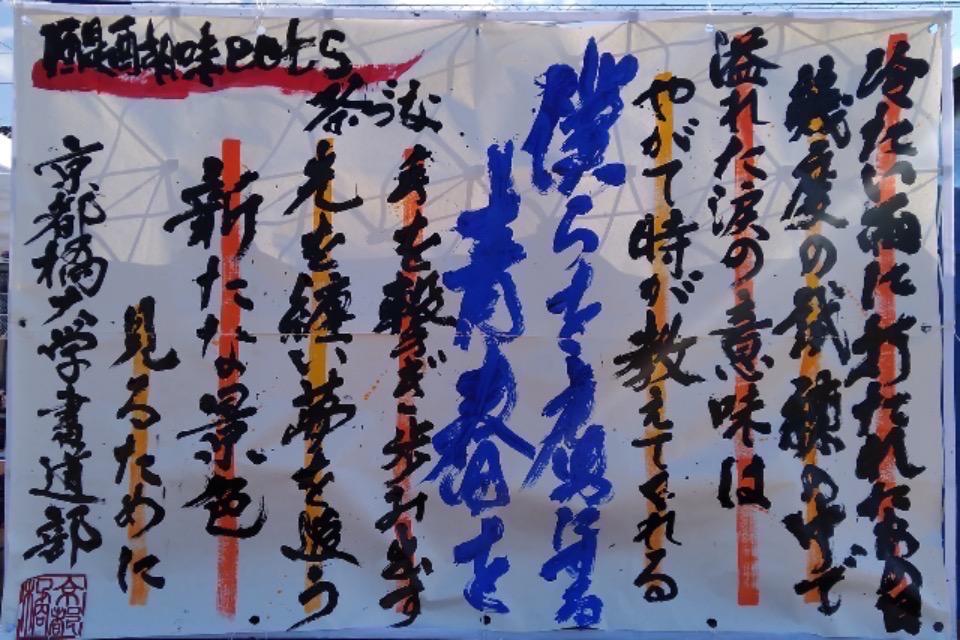 冷たい雨に打たれたあの日
幾度の試練の中で
溢れた涙の意味は
やがて時が教えてくれる
僕ら
青春を
手を繋ぎ歩み出す
光を纏い夢を追う
新たな景色
見るために
京都橘大学書道部
醍醐味
茶づな
京都橘